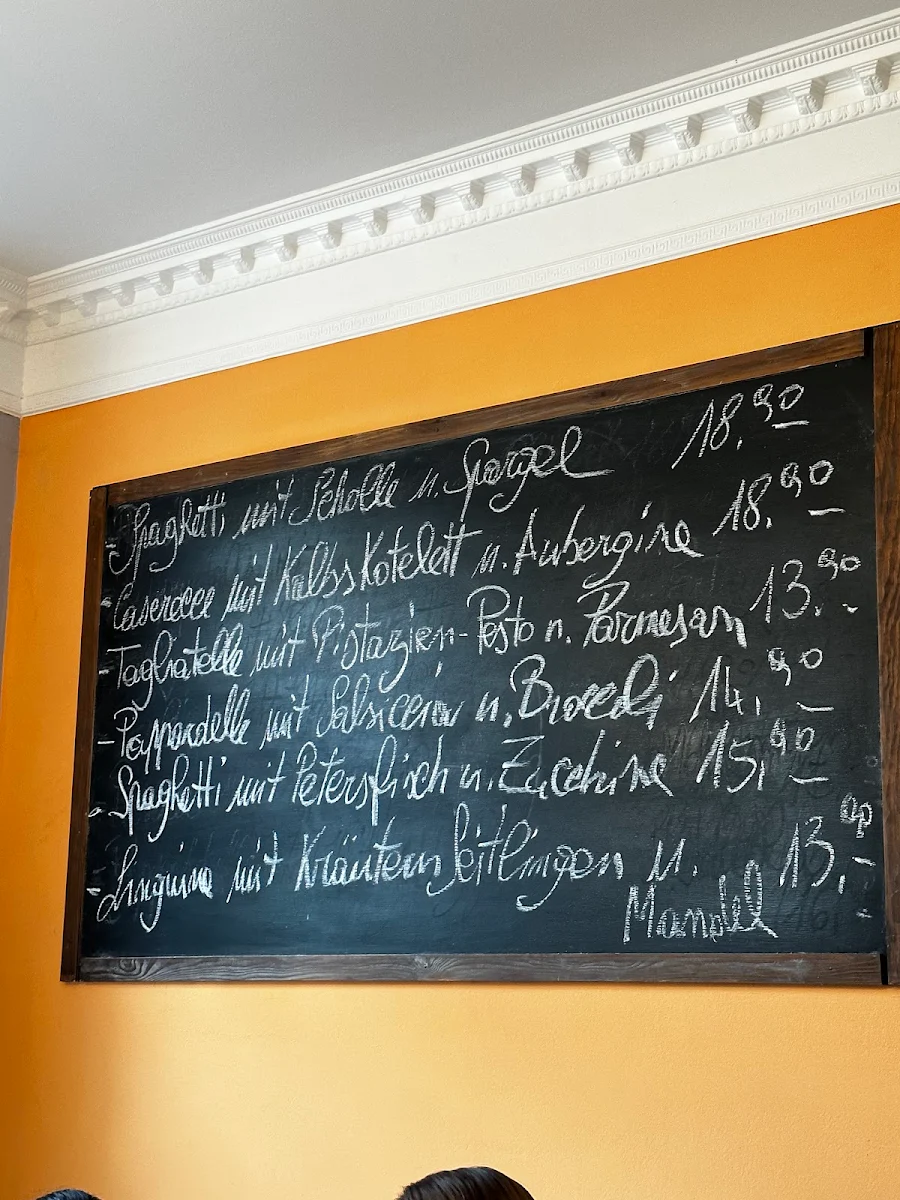 - Spaghetti mit Scholle u. Spargel 18.90
- Caserecce mit Kalbsskotelett u. Aubergine 18.90
- Tagliatelle mit Pistazien-Pesto u. Parmesan 13.90
- Pappardelle mit Salsiccia u. Broccoli 14,90
- Spaghetti mit Petersfisch u. Zucchine 15,90
- Linguine mit Kräutern Seitlingen u. 13,90
Mandel